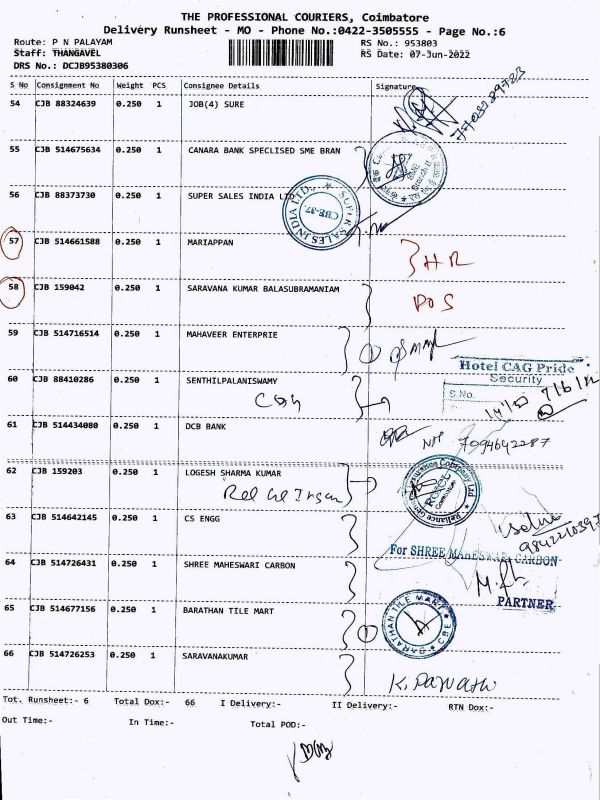 THE PROFESSIONAL COURIERS, Coimbatore
Delivery Runsheet - MO - Phone No.:0422-3505555 - Page No.:6
Route: P N PALAYAM
RS No.: 953803
Staff: THANGAVEL
RS Date: 07-Jun-2022
DRS No.: DCJB95380306
S No Consignment No Weight PCS Consignee Details Signature
54 CJB 88324639 0.250 1 JOB(4) SURE
55 CJB 514675634 0.250 1 CANARA BANK SPECLISED SME BRAN
56 CJB 88373730 0.250 1 SUPER SALES INDIA LTD
SUPER SALES INDIA LTD. CBE-37.
57 CJB 514661588 0.250 1 MARIAPPAN
HR
58 CJB 159042 0.250 1 SARAVANA KUMAR BALASUBRAMANIAM
POS
59 CJB 514716514 0.250 1 MAHAVEER ENTERPRIE
Hotel CAG Pride
Security
S.No.
60 CJB 88410286 0.250 1 SENTHILPALANISWAMY
61 CJB 514434080 0.250 1 DCB BANK
7094642287
62 CJB 159203 0.250 1 LOGESH SHARMA KUMAR
63 CJB 514642145 0.250 1 CS ENGG
For SHREE MAHESWARI CARBON
64 CJB 514726431 0.250 1 SHREE MAHESWARI CARBON
PARTNER
65 CJB 514677156 0.250 1 BARATHAN TILE MART
BARATHAN TILE MART CBE
66 CJB 514726253 0.250 1 SARAVANAKUMAR
Tot. Runsheet:- 6 Total Dox:- 66 I Delivery:- II Delivery:- RTN Dox:-
Out Time:- In Time:- Total POD:-